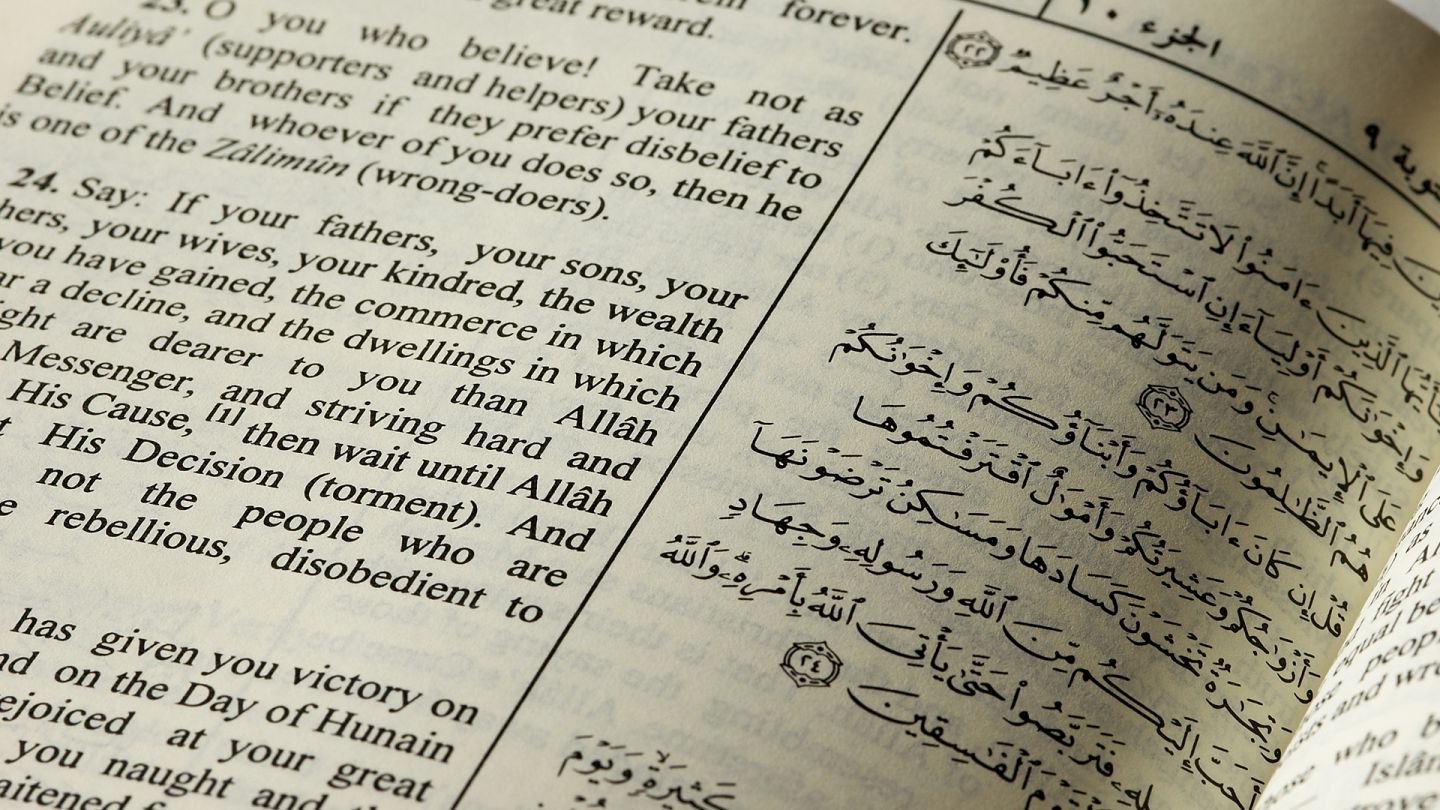 forever.
great reward.
23. O you who believe! Take not as
Auliyâ' (supporters and helpers) your fathers
and your brothers if they prefer disbelief to
Belief. And whoever of you does so, then he
is one of the Zâlimûn (wrong-doers).
24. Say: If your fathers, your sons, your
hers, your wives, your kindred, the wealth
you have gained, the commerce in which
ar a decline, and the dwellings in which
ight are dearer to you than Allâh
Messenger, and striving hard and
His Cause, [1] then wait until Allâh
His Decision (torment). And
not the people who are
rebellious, disobedient to
has given you victory on
nd on the Day of Hunain
ejoiced at your great
you naught and
الجزء ١٠
توبة ٩
فِيهَآ أَبَدًا إِنَّ ٱللَّهَ عِندَهُۥٓ أَجْرٌ عَظِيمٌ ٢٢
ٱلَّذِينَ ءَامَنُوا۟ لَا تَتَّخِذُوٓا۟ ءَابَآءَكُمْ
وَإِخْوَٰنَكُمْ أَوْلِيَآءَ إِنِ ٱسْتَحَبُّوا۟ ٱلْكُفْرَ
عَلَى ٱلْإِيمَـٰنِ وَمَن يَتَوَلَّهُم مِّنكُمْ فَأُو۟لَـٰٓئِكَ
هُمُ ٱلظَّـٰلِمُونَ ٢٣
قُلْ إِن كَانَ ءَابَآؤُكُمْ وَأَبْنَآؤُكُمْ وَإِخْوَٰنُكُمْ
وَأَزْوَٰجُكُمْ وَعَشِيرَتُكُمْ وَأَمْوَٰلٌ ٱقْتَرَفْتُمُوهَا
وَتِجَـٰرَةٌ تَخْشَوْنَ كَسَادَهَا وَمَسَـٰكِنُ تَرْضَوْنَهَآ
أَحَبَّ إِلَيْكُم مِّنَ ٱللَّهِ وَرَسُولِهِۦ وَجِهَادٍ
فَتَرَبَّصُوا۟ حَتَّىٰ يَأْتِىَ ٱللَّهُ بِأَمْرِهِۦ وَٱللَّهُ
ٱلْفَـٰسِقِينَ ٢٤
كَثِيرَةٍ وَيَوْمَ
as
fight
equal be
peopl
and wro
who b
Islâm